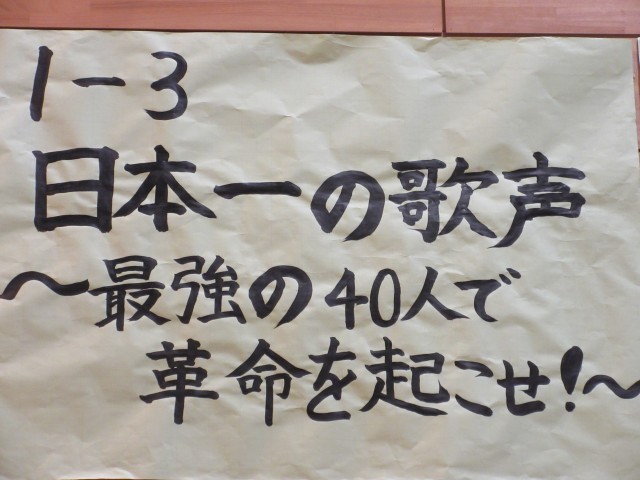 1-3
日本一の歌声
〜最強の40人で
革命を起こせ!〜